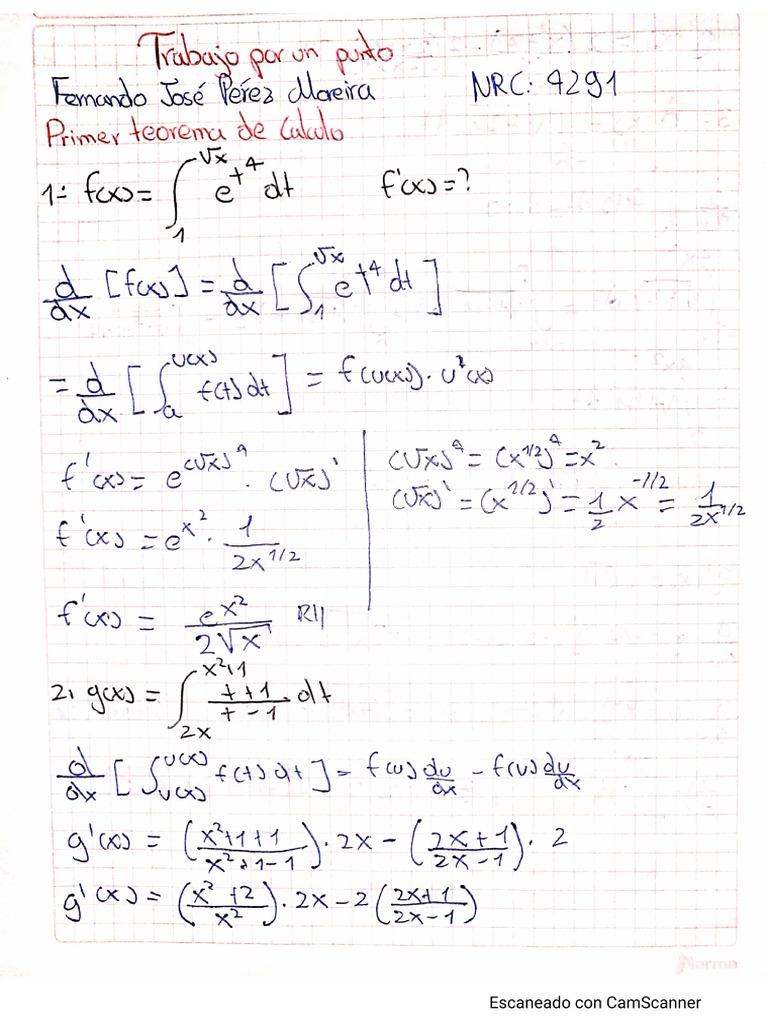 Trabajo por un punto
Fernando José Pérez Moreira NRC: 4291
Primer teorema de Calculo
1.- f(x) = ∫₁^√x e^t⁴ dt f'(x) = ?
d/dx [f(x)] = d/dx [∫₁^√x e^t⁴ dt]
= d/dx [∫ₐ^u(x) f(t) dt] = f(u(x)) · u'(x)
f'(x) = e^(√x)⁴ · (√x)'
(√x)⁴ = (x^1/2)⁴ = x²
(√x)' = (x^1/2)' = 1/2 x^-1/2 = 1/2x^1/2
f'(x) = e^x² · 1/2x^1/2
f'(x) = e^x²/2√x R//
2. g(x) = ∫_2x^x²+1 t+1/t-1 · dt
d/dx [∫_v(x)^u(x) f(t) dt] = f(u) du/dx - f(v) dv/dx
g'(x) = (x²+1+1/x²+1-1) · 2x - (2x+1/2x-1) · 2
g'(x) = (x²+2/x²) · 2x - 2(2x+1/2x-1)
Norma
Escaneado con CamScanner